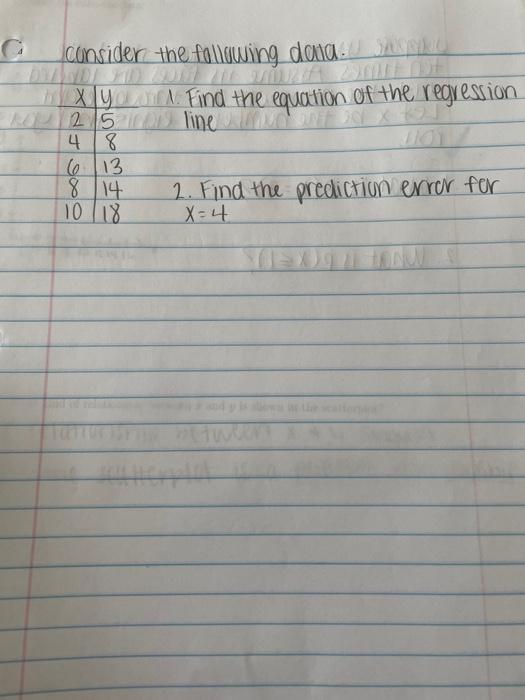 consider the following data.
x y 1. Find the equation of the regression
2 5 line
4 8
6 13
8 14 2. Find the prediction error for
10 18 x=4